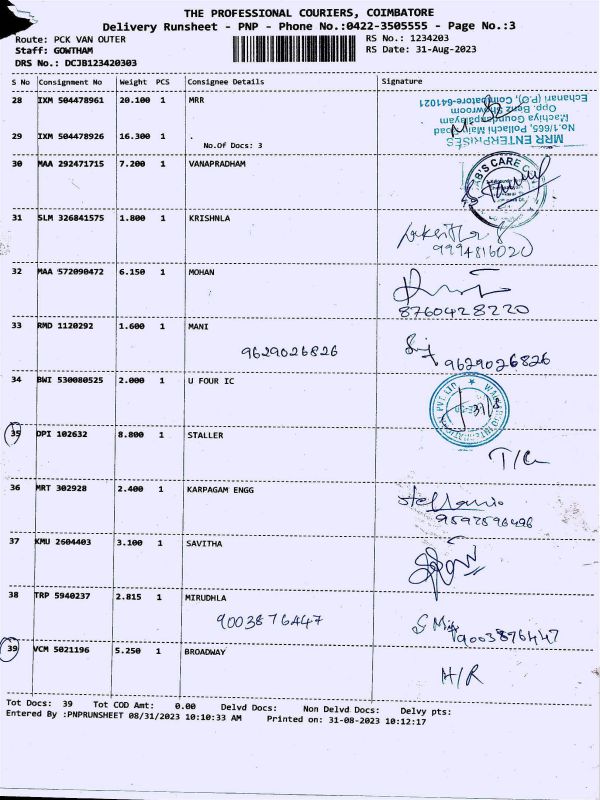 THE PROFESSIONAL COURIERS, COIMBATORE
Delivery Runsheet - PNP - Phone No.:0422-3505555 - Page No.:3
Route: PCK VAN OUTER RS No.: 1234203
Staff: GOWTHAM RS Date: 31-Aug-2023
DRS No.: DCJB123420303
S No Consignment No Weight PCS Consignee Details Signature
28 IXM 504478961 20.100 1 MRR
29 IXM 504478926 16.300 1 .
No.Of Docs: 3
MRR ENTERPRISES
No.1/665, Pollachi Main Road
Machiya Goundanpalayam
Opp. Benz Showroom
Echanari (P.O), Coimbatore-641021
30 MAA 292471715 7.200 1 VANAPRADHAM
31 SLM 326841575 1.800 1 KRISHNLA
9994816020
32 MAA 572090472 6.150 1 MOHAN
8760428220
33 RMD 1120292 1.600 1 MANI
9629026826 9629026826
34 BWI 530080525 2.000 1 U FOUR IC
35 DPI 102632 8.800 1 STALLER
36 MRT 302928 2.400 1 KARPAGAM ENGG
9597596496
37 KMU 2604403 3.100 1 SAVITHA
38 TRP 5940237 2.815 1 MIRUDHLA
9003876447 9003876447
39 VCM 5021196 5.250 1 BROADWAY
H/R
Tot Docs: 39 Tot COD Amt: 0.00 Delvd Docs: Non Delvd Docs: Delvy pts:
Entered By :PNPRUNSHEET 08/31/2023 10:10:33 AM Printed on: 31-08-2023 10:12:17